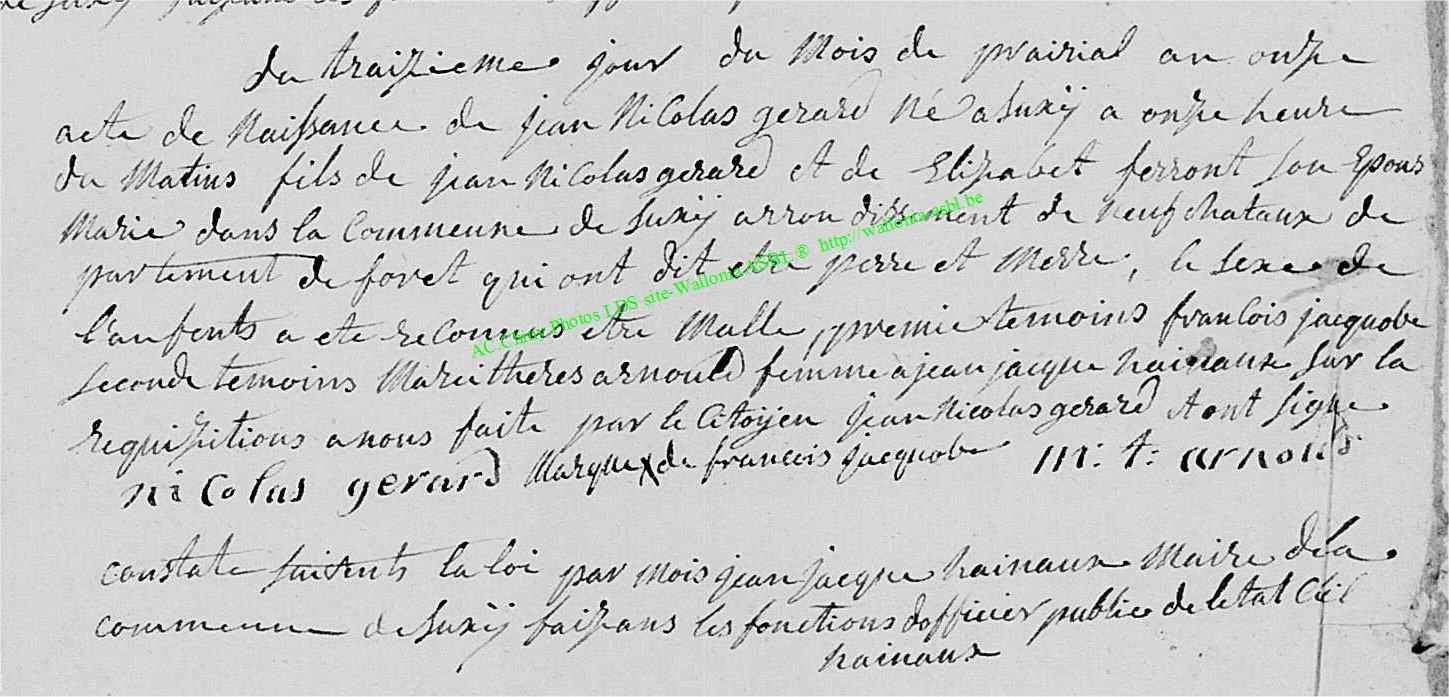 du traizieme jour du Mois de prairial an onze
acte de Naissance de jean Nicolas gerard Né a Suxÿ a onze heure
du Matins fils de jean Nicolas gerard et de Elizabet ferront son Epous
Marie dans la Commeune de Suxÿ arrondissement de neufchataux de
partement de foret qui ont dit etre perre et Merre, le sexe de
l'anfents a ete reconnus etre Malle, premie temoins francois jacquobe
seconde temoins Marie theres arnould femme a jean jacque hainaux sur la
requizitions a nous faite par le Citoyen jean Nicolas gerard et ont signe
nicolas gerard Marque x de francois jacquobe m: t: arnould
constate suivents la loi par mois jean jacque hainaux Maire dela
commeune de Suxÿ faizans les fonctions dofficier public de letat Civil
hainaux
AC Chiny Photos LDS site-Wallonia ASBL ® http://wallonia-asbl.be